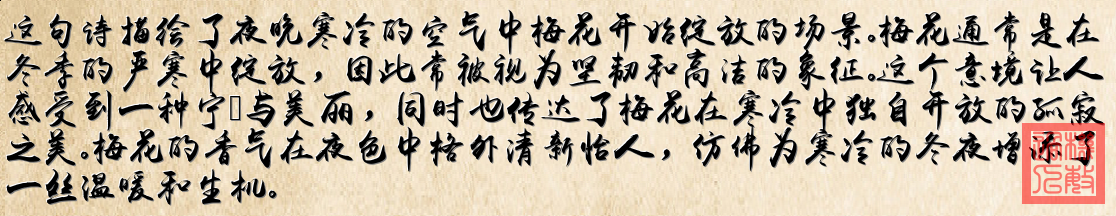 这句诗描绘了夜晚寒冷的空气中梅花开始绽放的场景。梅花通常是在
冬季的严寒中绽放，因此常被视为坚韧和高洁的象征。这个意境让人
感受到一种宁与美丽，同时也传达了梅花在寒冷中独自开放的孤寂
之美。梅花的香气在夜色中格外清新怡人，仿佛为寒冷的冬夜增添了
一丝温暖和生机。